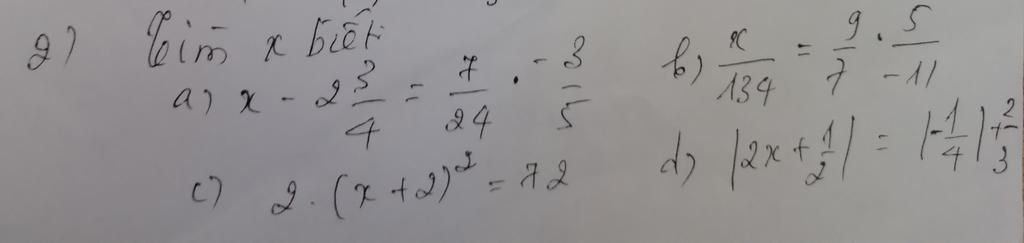 2) Tìm x biết
a) x - 2 3/4 = 7/24 . -3/5
b) x/134 = 9/7 . 5/-11
c) 2 . (x + 2)² = 72
d) |2x + 1/2| = |-1/4| + 2/3